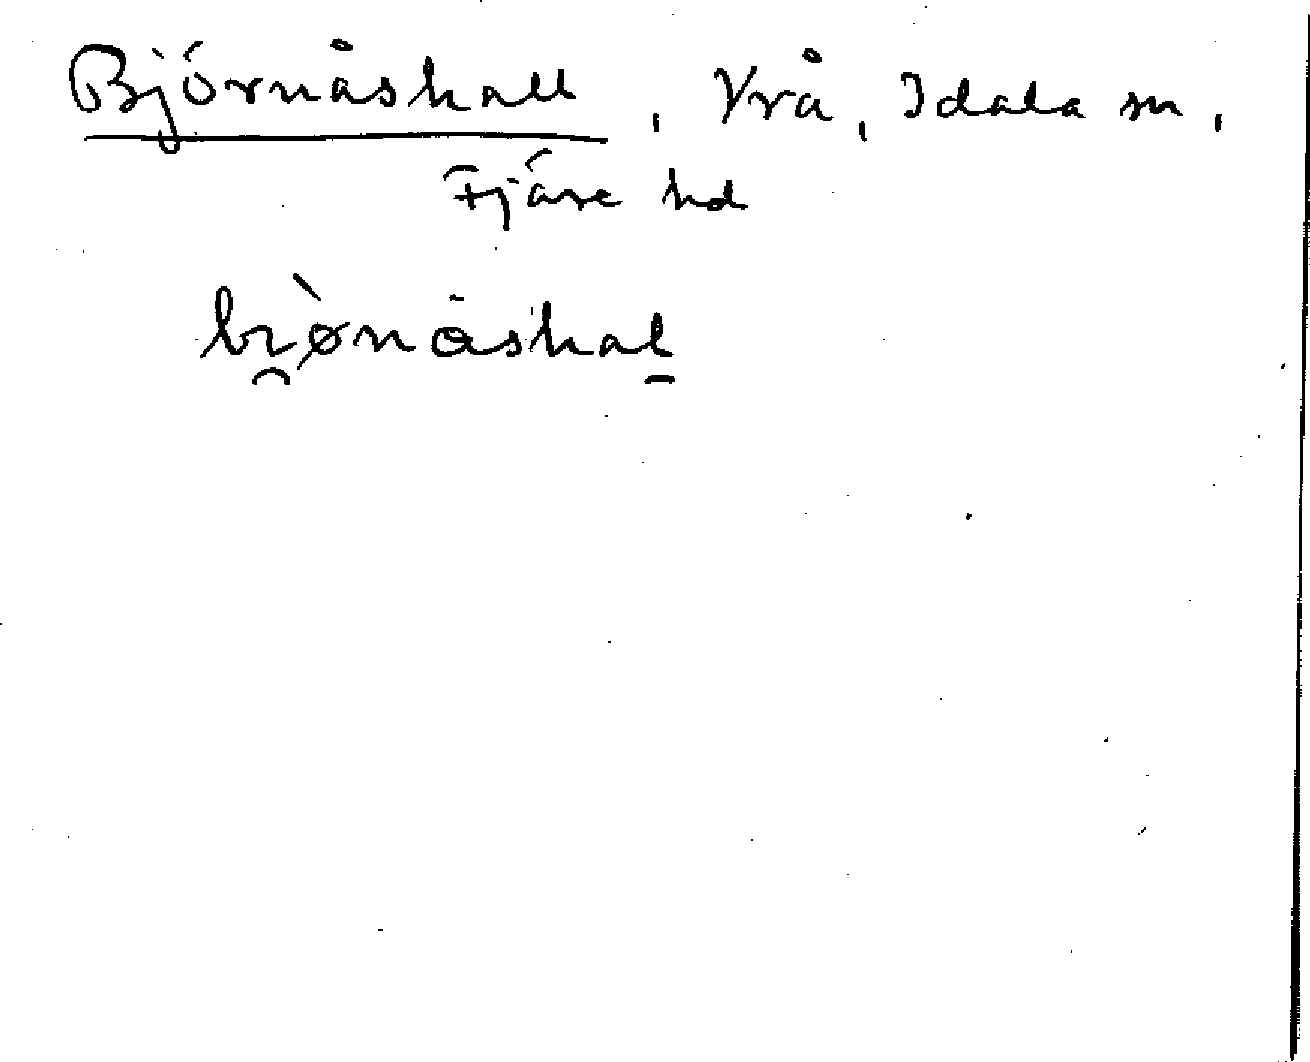 Björnåshall, Vrå, Idala sn,
Fjäre hd
bi̯ònåshal̠